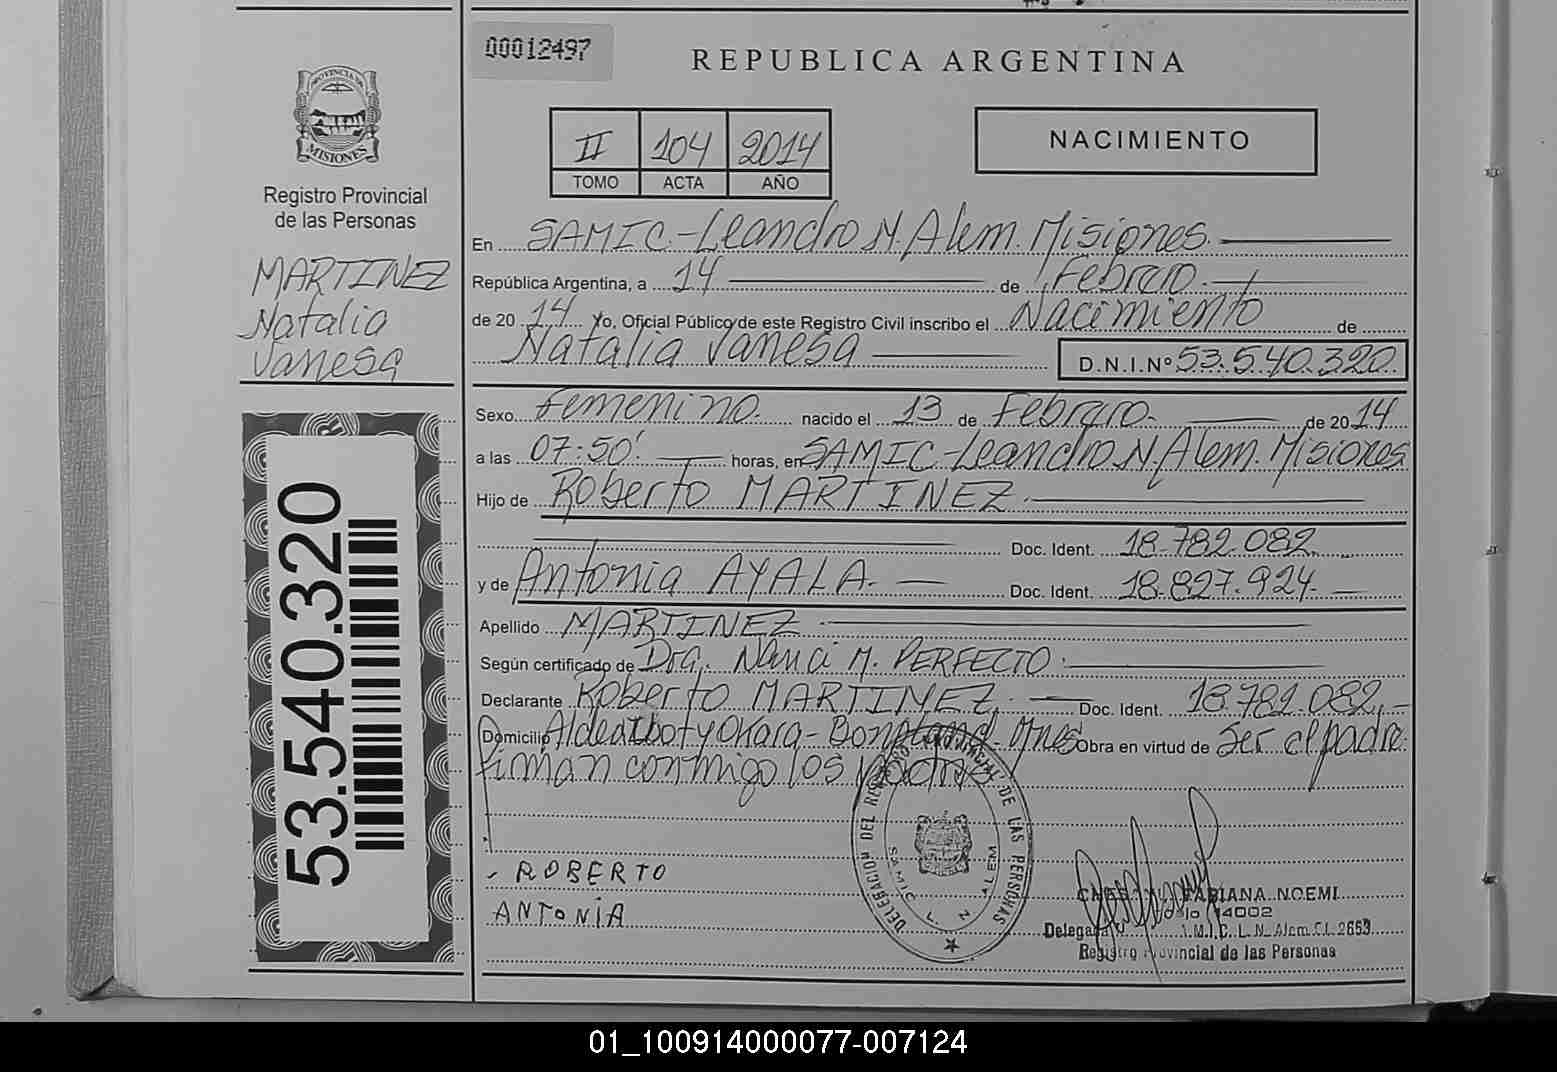 00012497
REPUBLICA ARGENTINA
PROVINCIA DE
MISIONES
Registro Provincial
de las Personas
II 104 2014
TOMO ACTA AÑO
NACIMIENTO
MARTINEZ
Natalia
Vanesa
En SAMIC - Leandro N. Alem. Misiones.
República Argentina, a 14 de Febrero.
de 20 14 Yo, Oficial Público de este Registro Civil inscribo el Nacimiento de
Natalia Vanesa D.N.I.Nº 53.540.320.
Sexo Femenino. nacido el 13 de Febrero. de 20 14
a las 07:50' horas, en SAMIC - Leandro N. Alem. Misiones
Hijo de Roberto MARTINEZ.
Doc. Ident. 18.782.082.
y de Antonia AYALA. Doc. Ident. 18.827.924.
Apellido MARTINEZ.
Según certificado de Dra. Nanci M. PERFECTO.
Declarante Roberto MARTINEZ. Doc. Ident. 18.782.082.
Domicilio Aldea Ibotyokara - Bonpland - Mnes Obra en virtud de ser el padre.
firman conmigo los padres
53.540.320
ROBERTO
ANTONIA
DELEGACION DEL REGISTRO PROVINCIAL DE LAS PERSONAS
SAMIC L. N. ALEM
FABIANA NOEMI
14002
Delegada L. N. Alem CI. 2653
Registro Provincial de las Personas
01_100914000077-007124